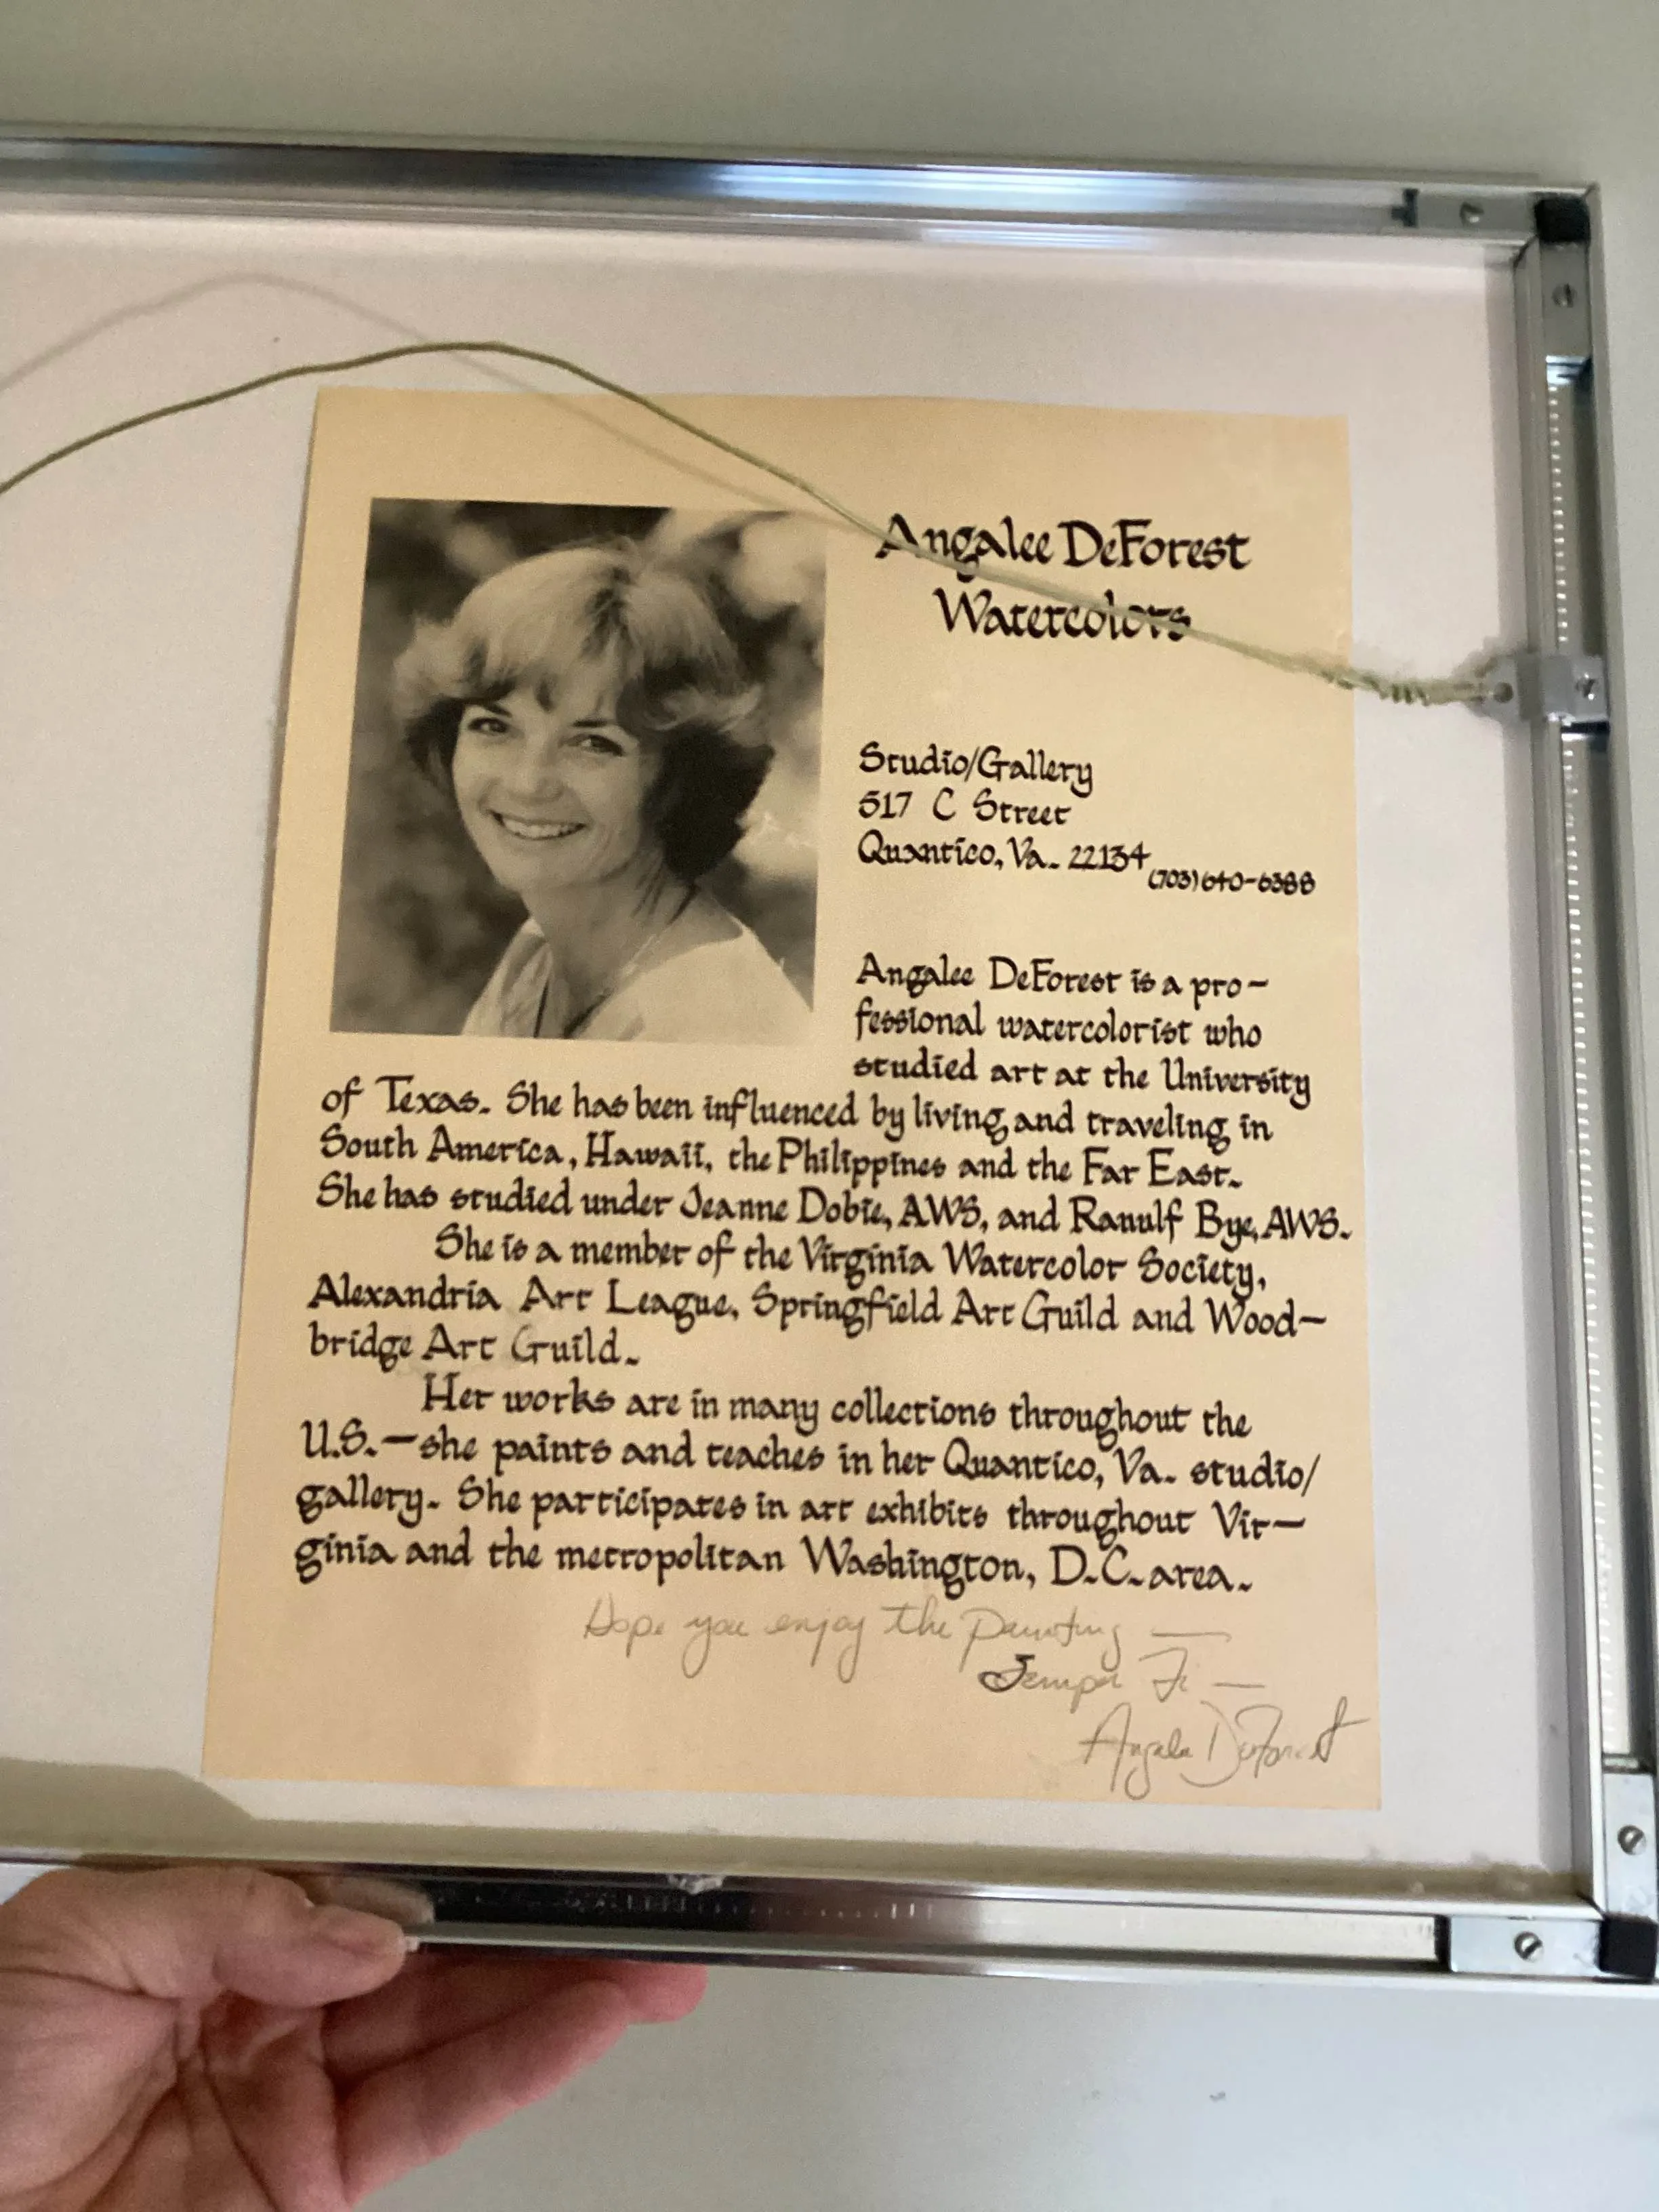 Angalee DeForest
Watercolors
Studio/Gallery
517 C Street
Quantico, Va. 22134
(703) 640-6388
Angalee DeForest is a pro-
fessional watercolorist who
studied art at the University
of Texas. She has been influenced by living and traveling in
South America, Hawaii, the Philippines and the Far East.
She has studied under Jeanne Dobie, AWS, and Ranulf Bye, AWS.
She is a member of the Virginia Watercolor Society,
Alexandria Art League, Springfield Art Guild and Wood-
bridge Art Guild.
Her works are in many collections throughout the
U.S.—she paints and teaches in her Quantico, Va. studio/
gallery. She participates in art exhibits throughout Vir-
ginia and the metropolitan Washington, D.C. area.
Hope you enjoy the painting —
Semper Fi —
Angalee DeForest